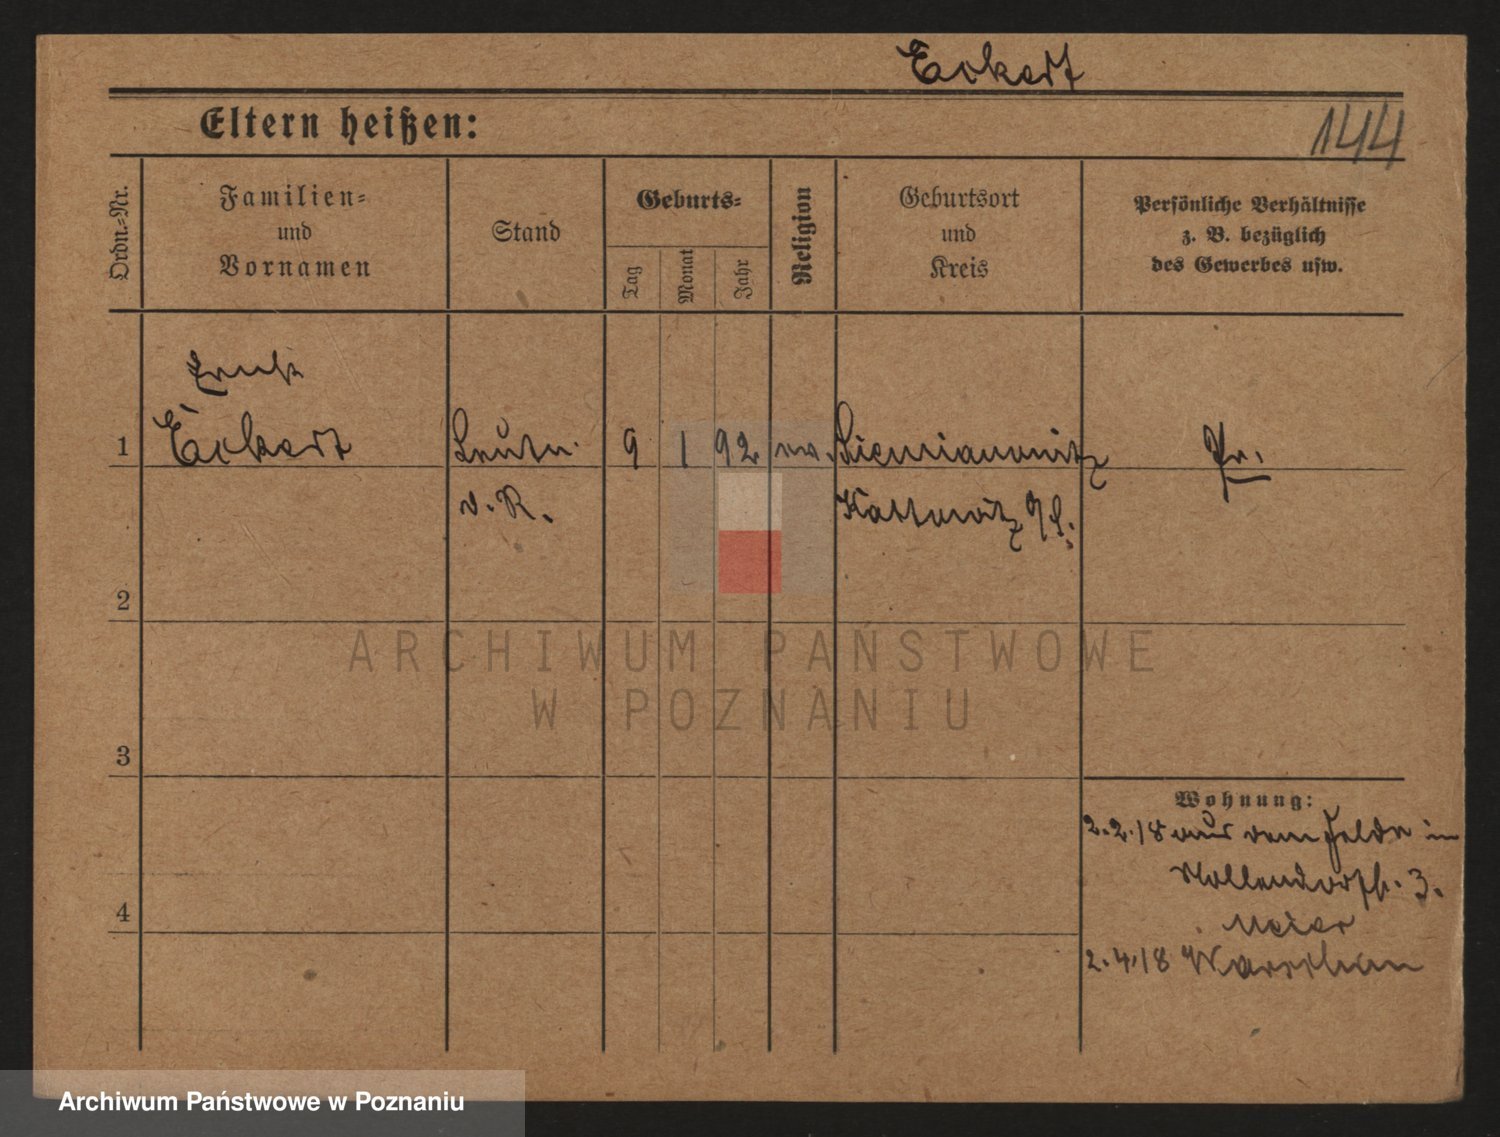 Eckert
Eltern heißen:
144
Ordn.-Nr.
Familien-
und
Vornamen
Stand
Geburts-
Tag
Monat
Jahr
Religion
Geburtsort
und
Kreis
Persönliche Verhältnisse
z. B. bezüglich
des Gewerbes usw.
Ernst
1 Eckert Leutn. 9 1 92 ev. Siemianowitz Pr.
d. R. Kattowitz O/S.
2
ARCHIWUM PAŃSTWOWE
W POZNANIU
3
Wohnung:
2.2.18 aus dem Felde in
Nollendorfstr. 3.
Meier
4
2.4.18 Warschau
Archiwum Państwowe w Poznaniu